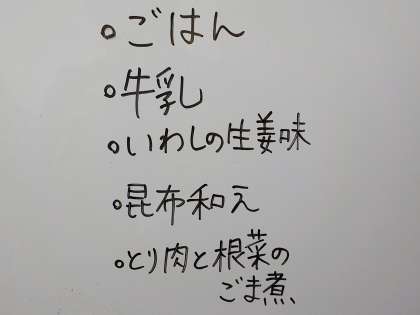 。ごはん
。牛乳
。いわしの生姜味
。昆布和え
。とり肉と根菜の
ごま煮